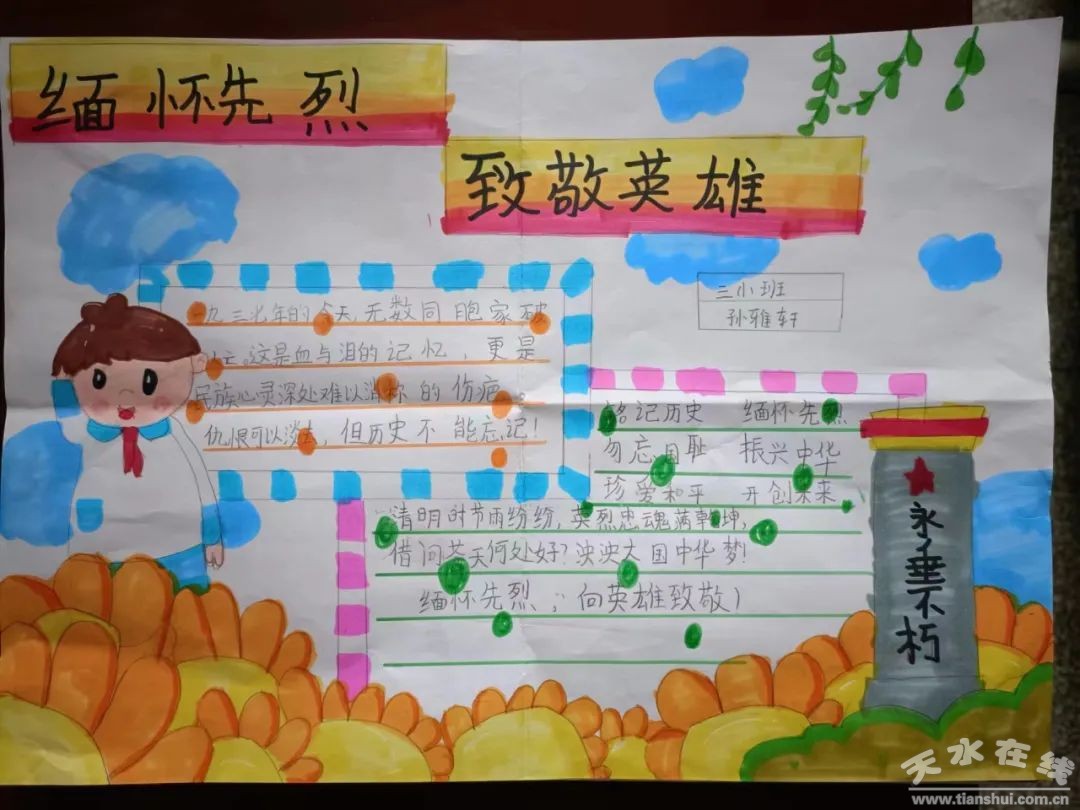 缅怀先烈
致敬英雄
三小班
孙雅轩
九三七年的今天,无数同胞家破
亡。这是血与泪的记忆,更是
民族心灵深处难以消称的伤疤
仇恨可以淡去,但历史不能忘记!
铭记历史 缅怀先烈
勿忘国耻 振兴中华
珍爱和平 开创未来
清明时节雨纷纷,英烈忠魂满乾坤,
借问苍天何处好?泱泱大国中华梦!
缅怀先烈,向英雄致敬!
永垂不朽
天水在线
www.tianshui.com.cn